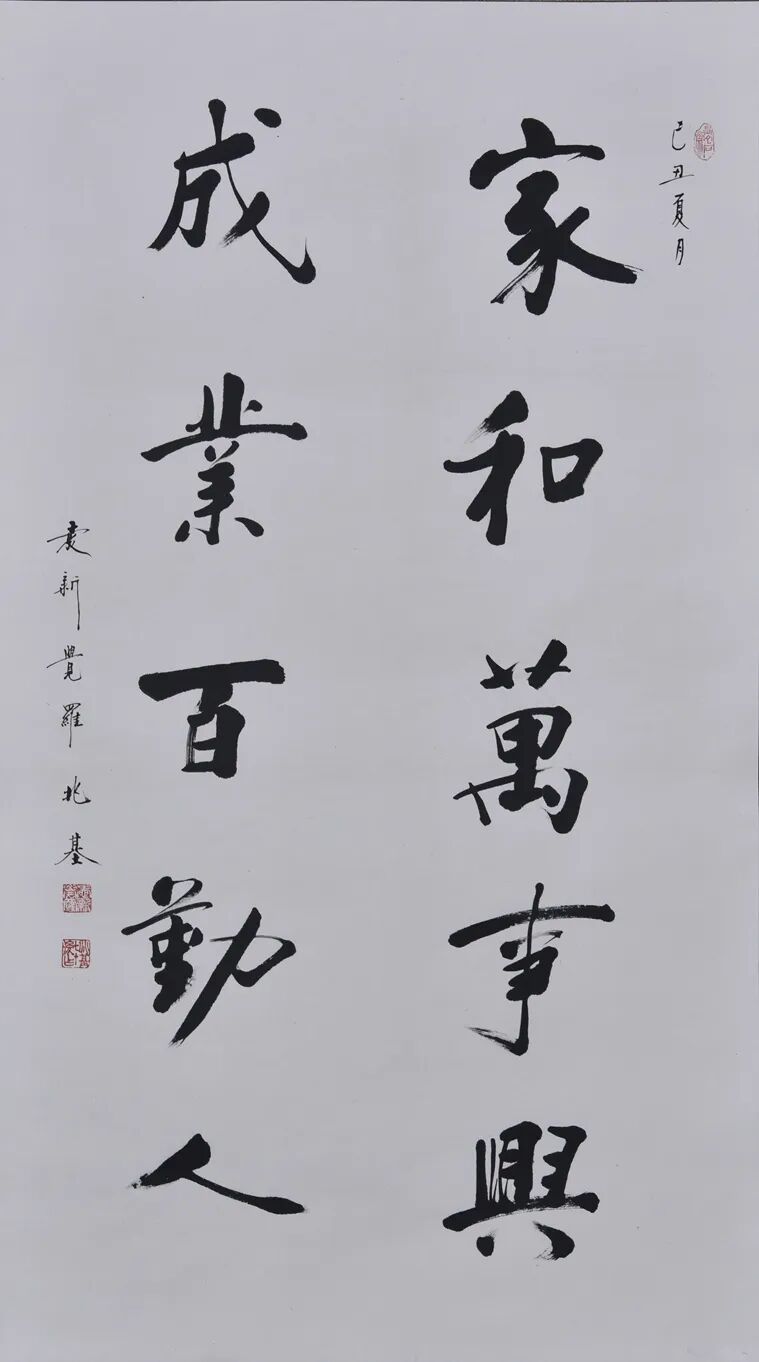 己丑夏月
家和萬事興
成業百勤人
愛新覺羅兆基